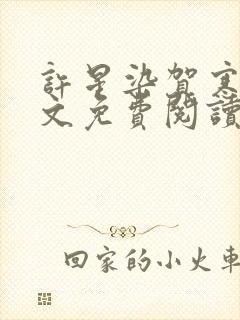 許星染賀寒
文免費閱讀
回家的小火車